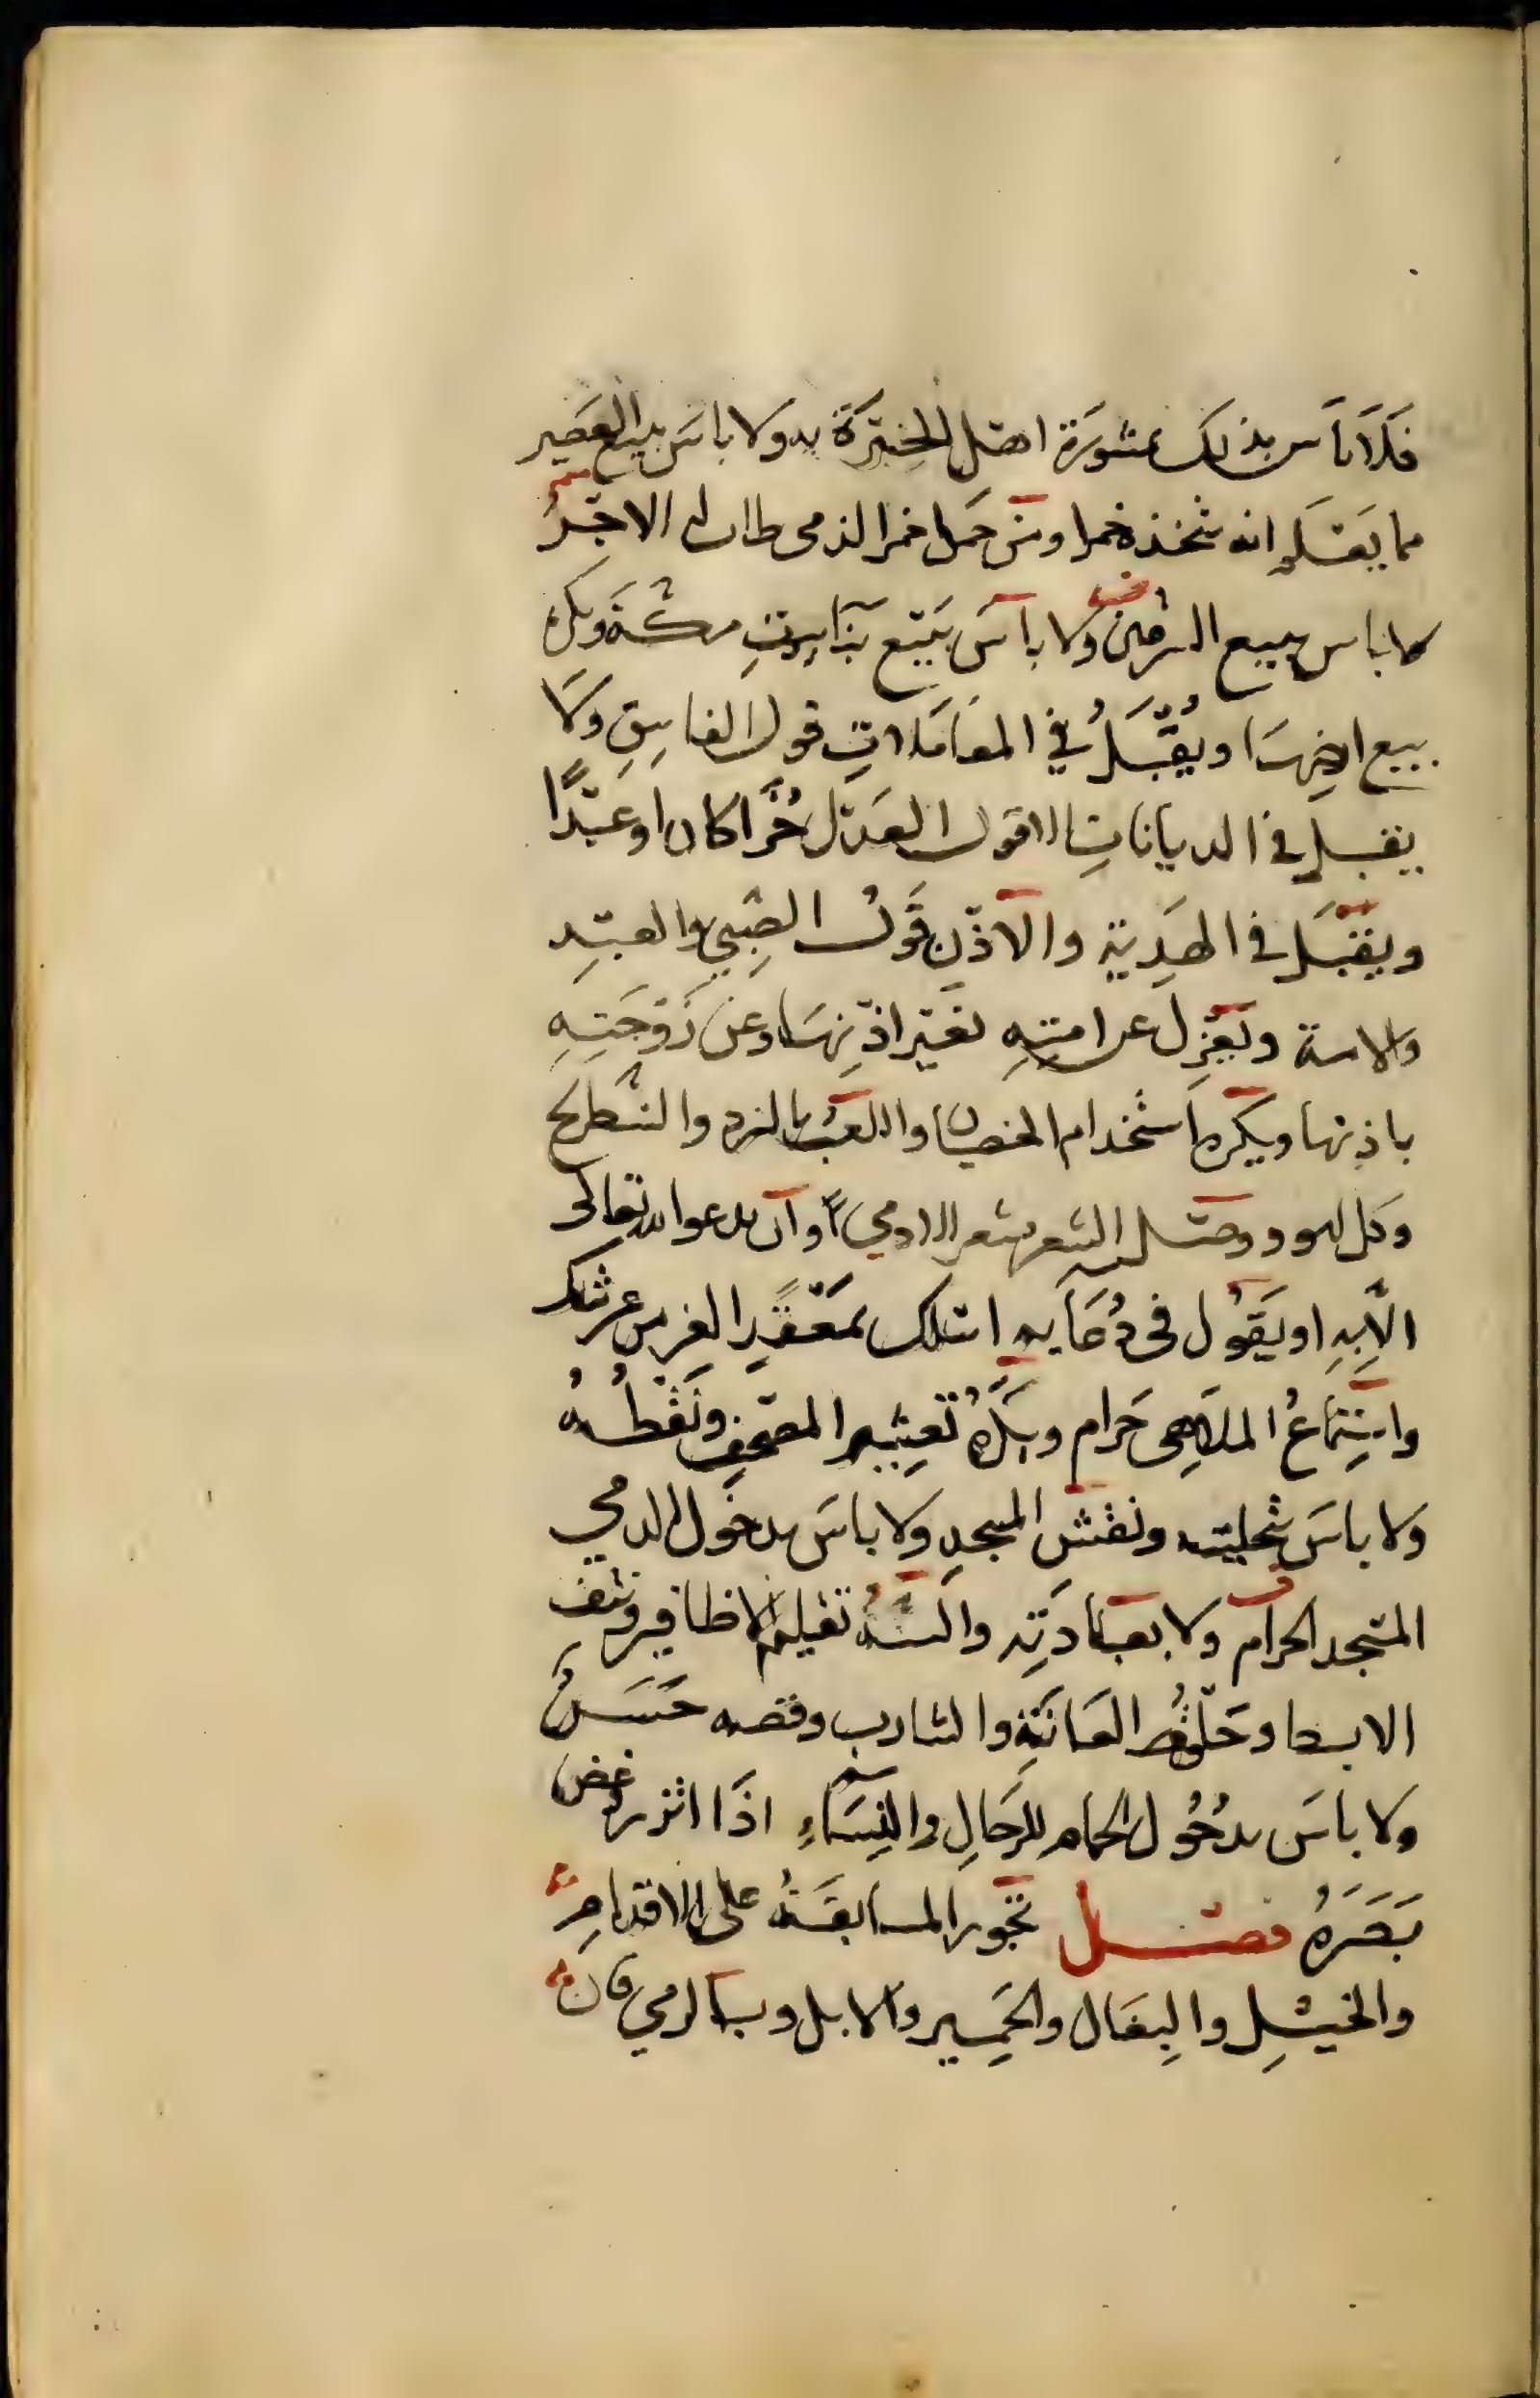 فَلَا بَأس بذلك بمشورَة اهْلِ الخِبْرَة به ولا باسَ ببيع العَصير
مما يَعْلَم انه يتخذه خمرا ومَن حَمل خمرا لذمى طاب له الاجْرُ
لا باس ببيع السرقين ولا بأسَ ببَيْع بِنَاءِ بيوتِ مكّة ويكره
بيع ارضِهَا ويُقْبَلُ في المعَامَلاتِ قول الفاسِقِ ولَا
يقبل في الديانات الا قول العَدْل حُرًّا كان او عَبْدًا
ويقبَل في الهَدِية والاذْنِ قَوْل الصَبِي والعبْدِ
والامة ويَعْزِل عن امتهِ بغَير اذْنِهَا وعن زَوْجَتِهِ
باذنها ويكره اسْتخدام الخصيان واللعب بالنرد والشطرنج
وكل لهو ووصْل الشعر بشعر الادمي وأن يدعوا الله تعالى
الّا بِهِ او يَقُول فى دُعَايهِ اسئلك بمَعْقَدِ العز من عرشك
واسْتِمَاعُ الملَاهِى حَرام ويكرَهُ تَعْشير المصْحَفِ ونَقْطُهُ
ولا باسَ بتحليته ونقش المسجدِ ولا باسَ بدخُول الذمي
المسْجد الحرام ولا بعيَادَتِه والسُنَّةُ تقليم الاظافير ونتف
الابط وحَلْقُ العَانَةِ والشارب وقصه حَسَنٌ
ولا باسَ بدُخُول الحمام للرجَالِ والنِسَاءِ اذَا اتزر وغض
بَصَرَهُ فصْل تجُوز المسَابقَةُ على الاقدَامِ
والخيْلِ والبِغَال والحَمِير والابل وبالرمي فان